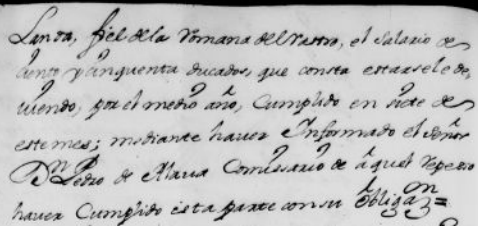 Landa, fiel dela Romana del rastro, el Salario de
ciento y cinquenta ducados, que consta estarsele de,
viendo, por el medio año, Cumplido en siete de
este mes; mediante haver Informado el Señor
Dn Pedro de Alava Comissario de aquel Repesso
haver Cumplido esta parte con su obligazn =